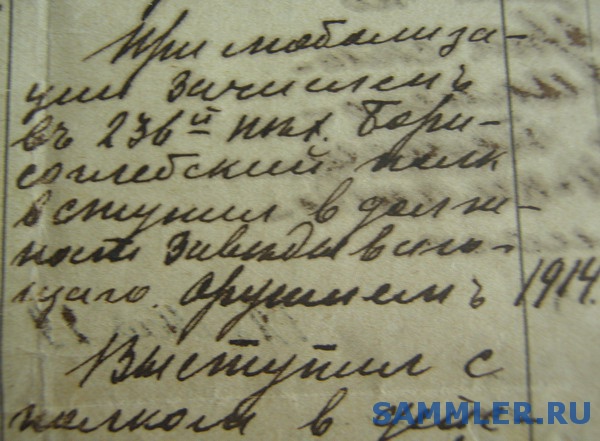 При мобилиза-
ции зачисленъ
въ 236й пѣх. Бори-
соглебский полк
вступил в долж-
ность Заведывающ-
щаго. Оружиемъ 1914.
Выступил с
полком в дей-
SAMMLER.RU